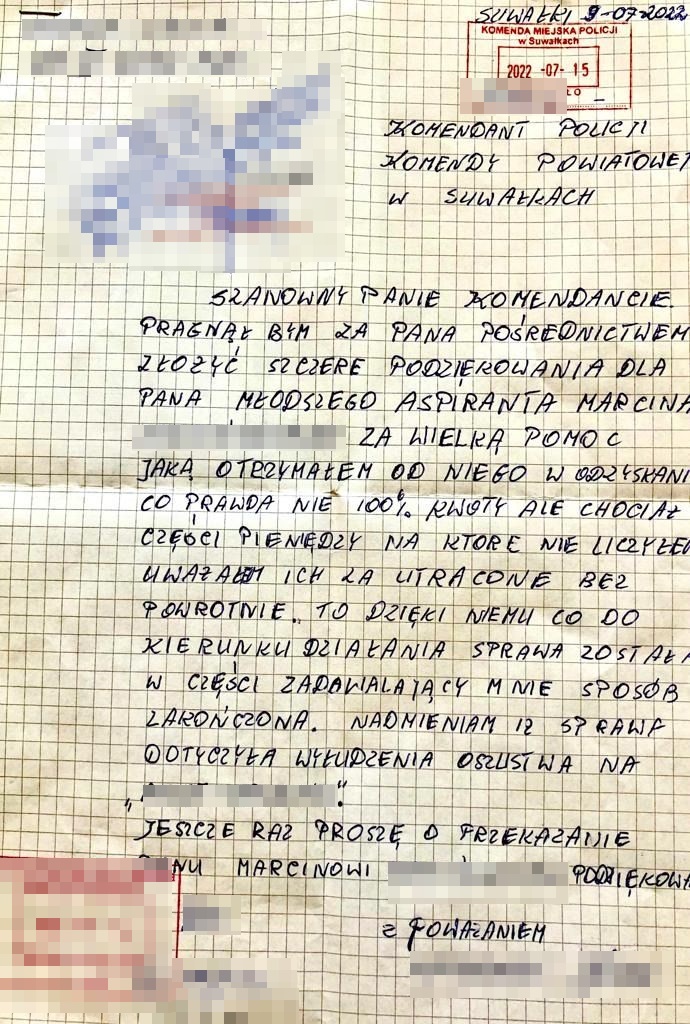 SUWAŁKI 9-07-2022
KOMENDA MIEJSKA POLICJI
w Suwałkach
2022 -07- 15
KOMENDANT POLICJI
KOMENDY POWIATOWEJ
W SUWAŁKACH
SZANOWNY PANIE KOMENDANCIE.
PRAGNĄŁ BYM ZA PANA POŚREDNICTWEM
ZŁOŻYĆ SZCZERE PODZIĘKOWANIA DLA
PANA MŁODSZEGO ASPIRANTA MARCINA
ZA WIELKĄ POMOC
JAKĄ OTRZYMAŁEM OD NIEGO W ODZYSKANI
CO PRAWDA NIE 100% KWOTY ALE CHOCIAŻ
CZĘŚCI PIENIĘDZY NA KTÓRE NIE LICZYŁEM
UWAŻAŁEM ICH ZA UTRACONE BEZ
POWROTNIE. TO DZIĘKI NIEMU CO DO
KIERUNKU DZIAŁANIA SPRAWA ZOSTAŁA
W CZĘŚCI ZADAWALAJĄCY MNIE SPOSÓB
ZAKOŃCZONA. NADMIENIAM IŻ SPRAWA
DOTYCZYŁA WYŁUDZENIA OSZUSTWA NA
„ "
JESZCZE RAZ PROSZĘ O PRZEKAZANIE
PANU MARCINOWI PODZIĘKOWA
Z POWAŻANIEM